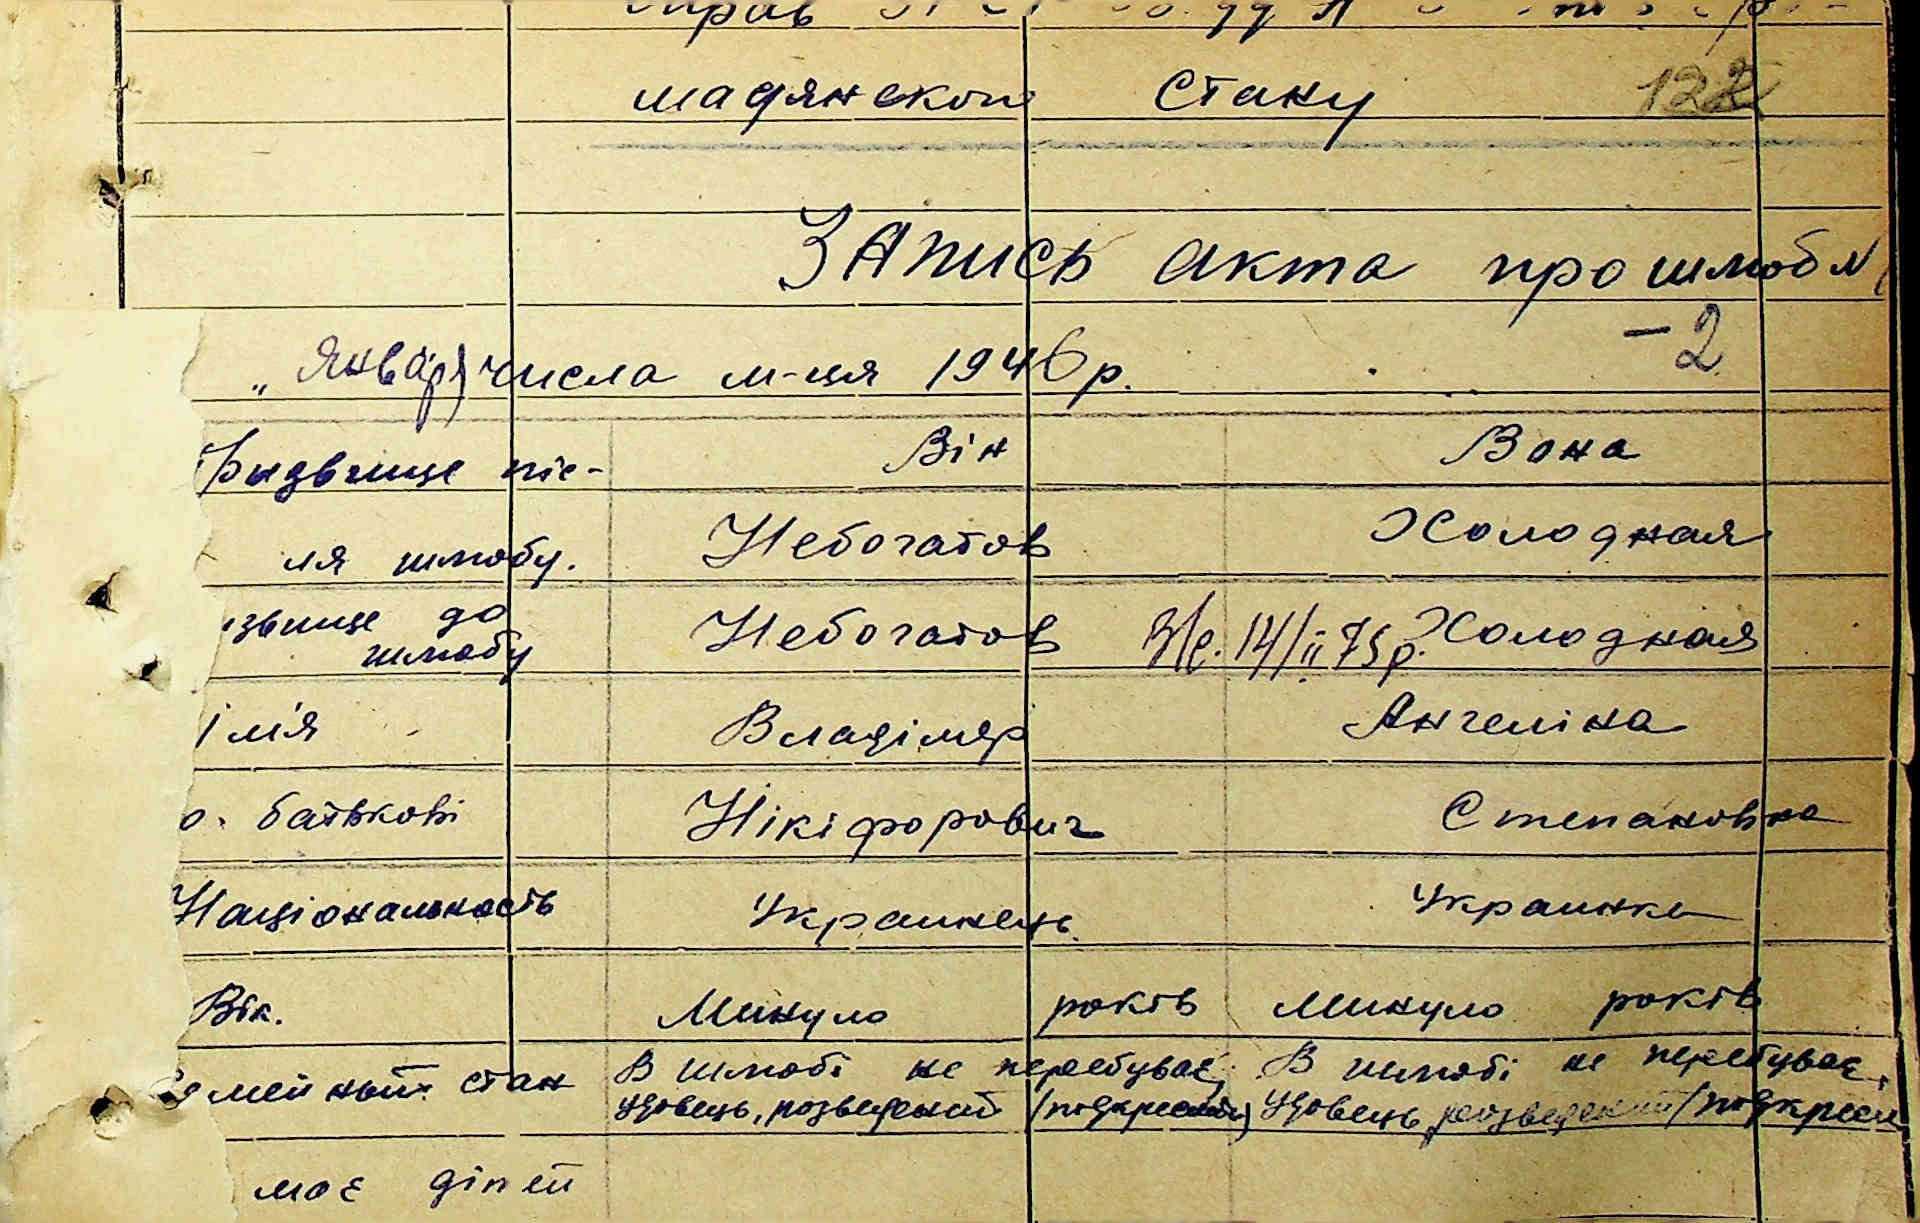 мадянского стану 122
Запись акта про шлюб N
- 2
„ Январ числа м-ця 1946 р.
Він Вона
пiс-
ля шлюбу. Небогатов Холодная
ізвище до шлюбу Небогатов 14/II 75 р. Холодная
ім'я Владімир Ангеліна
о. батькові Нікіфорович Степановна
Національность Украинець. Украинка
Вік. Минуло років Минуло років
семейный стан В шлюбі не перебуває, В шлюбі не перебуває,
удовець, розведений /подкреслить/ удовець, розведений /подкресли
має дітей